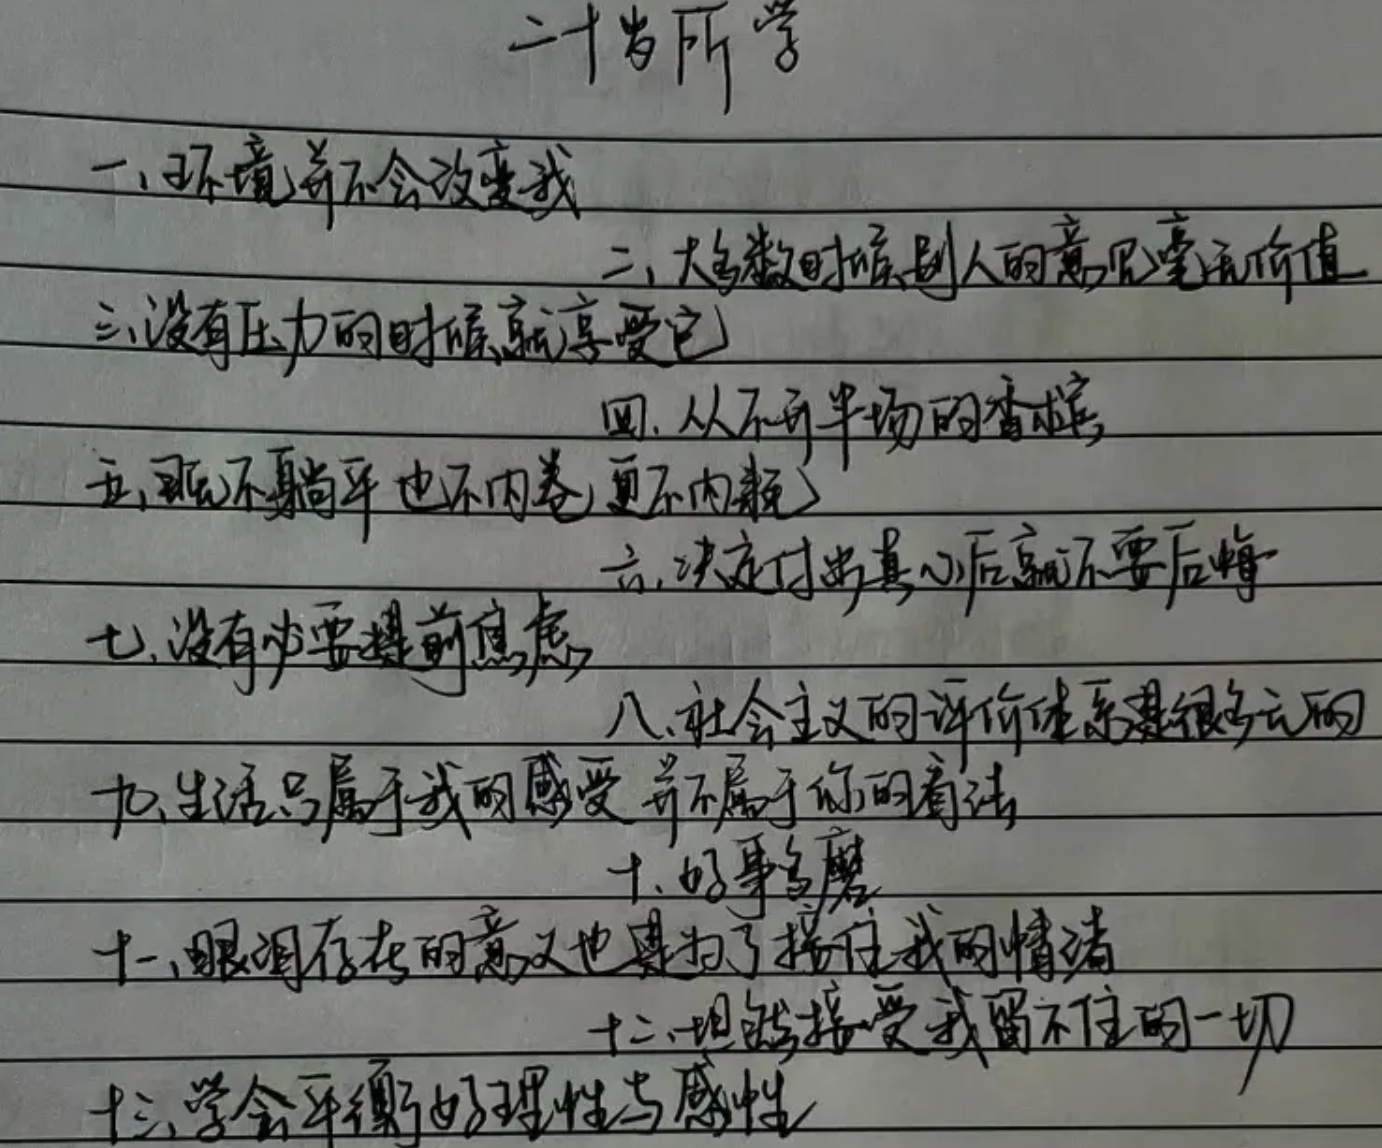 二十岁所学
一、环境并不会改变我
二、大多数时候别人的意见毫无价值
三、没有压力的时候就享受它
四、从不开半场的香槟
五、既不躺平也不内卷，更不内耗
六、决定付出真心后就不要后悔
七、没有必要提前焦虑
八、社会主义的评价体系是很多元的
九、生活只属于我的感受 并不属于你的看法
十、好事多磨
十一、眼泪存在的意义也是为了接住我的情绪
十二、坦然接受我留不住的一切
十三、学会平衡好理性与感性